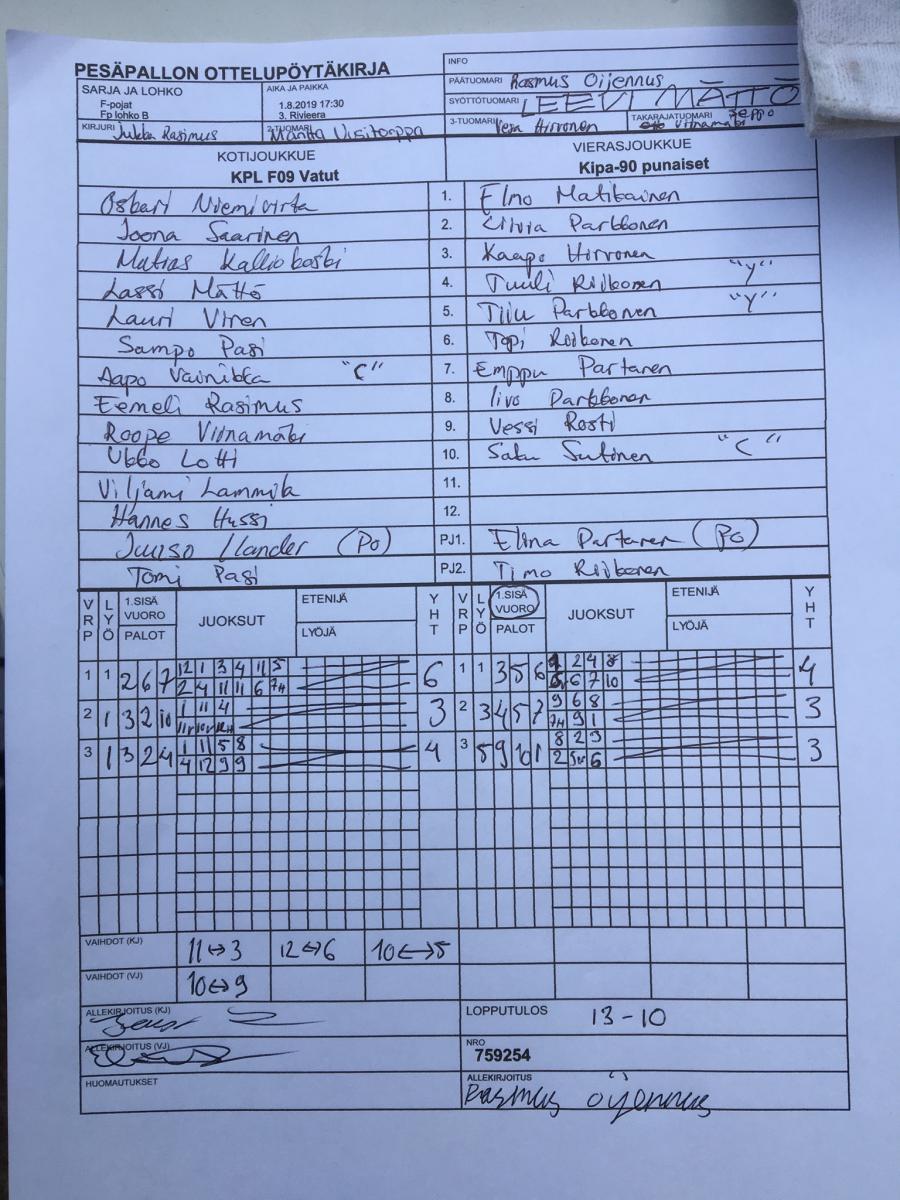 PESÄPALLON OTTELUPÖYTÄKIRJA
INFO
SARJA JA LOHKO
F-pojat
Fp lohko B
AIKA JA PAIKKA
1.8.2019 17:30
3. Rivieera
PÄÄTUOMARI Rasmus Öijennus
SYÖTTÖTUOMARI LEEVI MÄTTÖ
KIRJURI Jukka Rasimus
2-TUOMARI
3-TUOMARI Vesa Hirvonen
TAKARAJATUOMARI Seppo Viinamäki
KOTIJOUKKUE
KPL F09 Vatut
VIERASJOUKKUE
Kipa-90 punaiset
Oskari Niemivirta 1. Elmo Matikainen
Joona Saarinen 2. Silvia Parkkonen
Matias Kalliokoski 3. Kaapo Hirvonen
Lassi Mättö 4. Tuuli Riikonen "Y"
Lauri Viren 5. Tiiu Parkkonen "Y"
Sampo Pasi 6. Topi Roikonen
Aapo Vainikka "C" 7. Emppu Partanen
Eemeli Rasimus 8. Iivo Parkkonen
Roope Viinamäki 9. Vessi Rosti
Ukko Lotti 10. Satu Sutinen "C"
Viljami Lammila 11.
Hannes Hussi 12.
Juuso Ilander (PO) PJ1. Elina Partanen (PO)
Tomi Pasi PJ2. Timo Riikonen
VRP LYÖ 1.SISÄ VUORO PALOT JUOKSUT ETENIJÄ LYÖJÄ YHT VRP LYÖ 1.SISÄ VUORO PALOT JUOKSUT ETENIJÄ LYÖJÄ YHT
1 1 2 6 7 12 1 3 4 11 5 6 1 1 3 5 6 2 4 8 4
2 4 11 11 6 7H 6 7 10
2 1 3 2 10 1 11 4 3 2 3 4 5 7 9 6 8 3
7H 9 1
3 1 3 2 4 1 11 5 8 4 3 5 9 10 1 8 2 3 3
4 12 9 9 2 5 6
VAIHDOT (KJ) 11↔3 12↔6 10↔5
VAIHDOT (VJ) 10↔9
ALLEKIRJOITUS (KJ)
LOPPUTULOS 13-10
ALLEKIRJOITUS (VJ)
NRO
759254
HUOMAUTUKSET
ALLEKIRJOITUS
Rasmus Öijennus